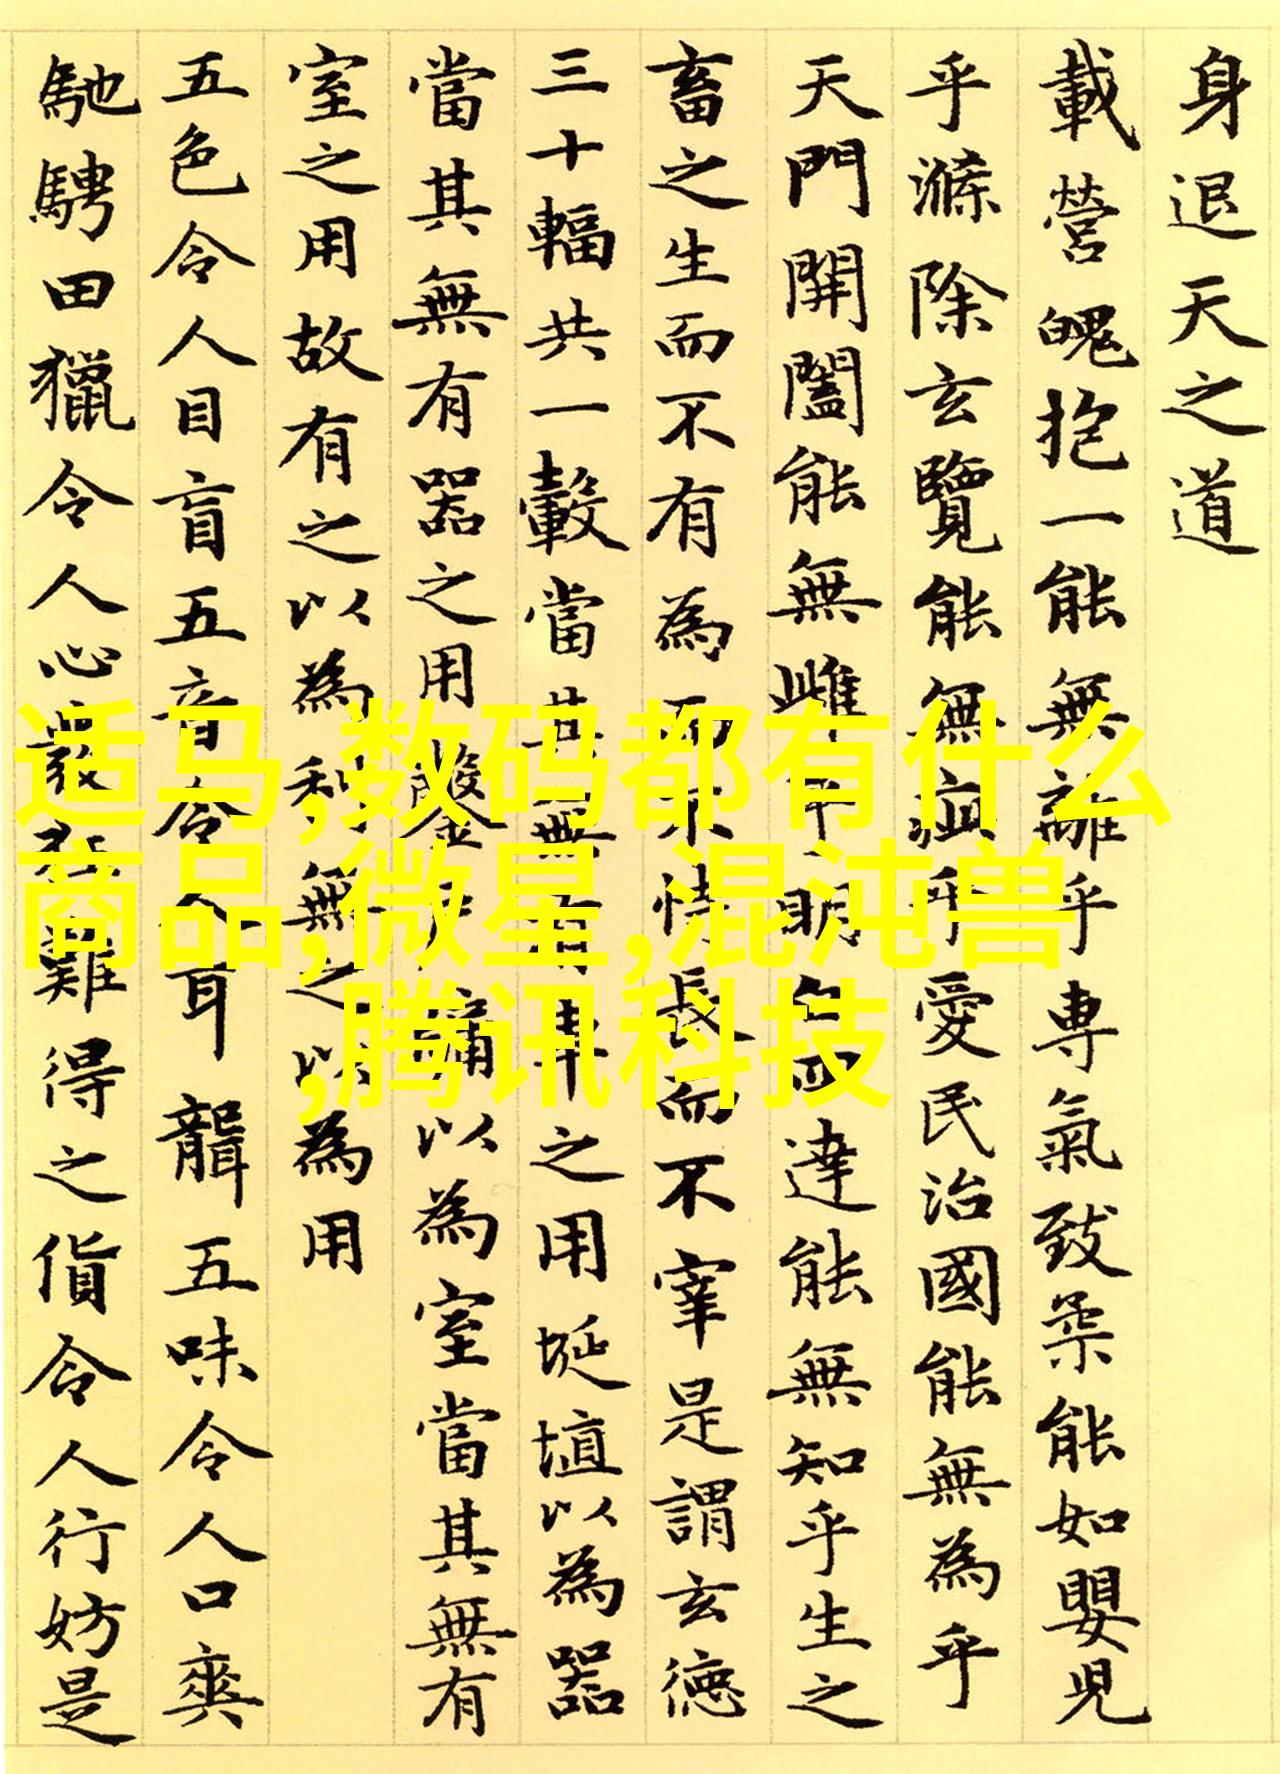 身退天之道
載營魄抱一能無離乎專氣致柔能如嬰兒
乎滌除玄覽能無疵乎愛民治國能無為乎
天門開闔能無雌乎明白四達能無知乎生之
畜之生而不有為而不恃長而不宰是謂玄德
三十輻共一轂當其無有車之用埏埴以為器
當其無有器之用鑿戶牖以為室當其無有
室之用故有之以為利無之以為用
五色令人目盲五音令人耳聾五味令人口爽
馳騁田獵令人心發狂難得之貨令人行妨是
适马,数码都有什么
商品,微星,混沌兽
,腾讯科技